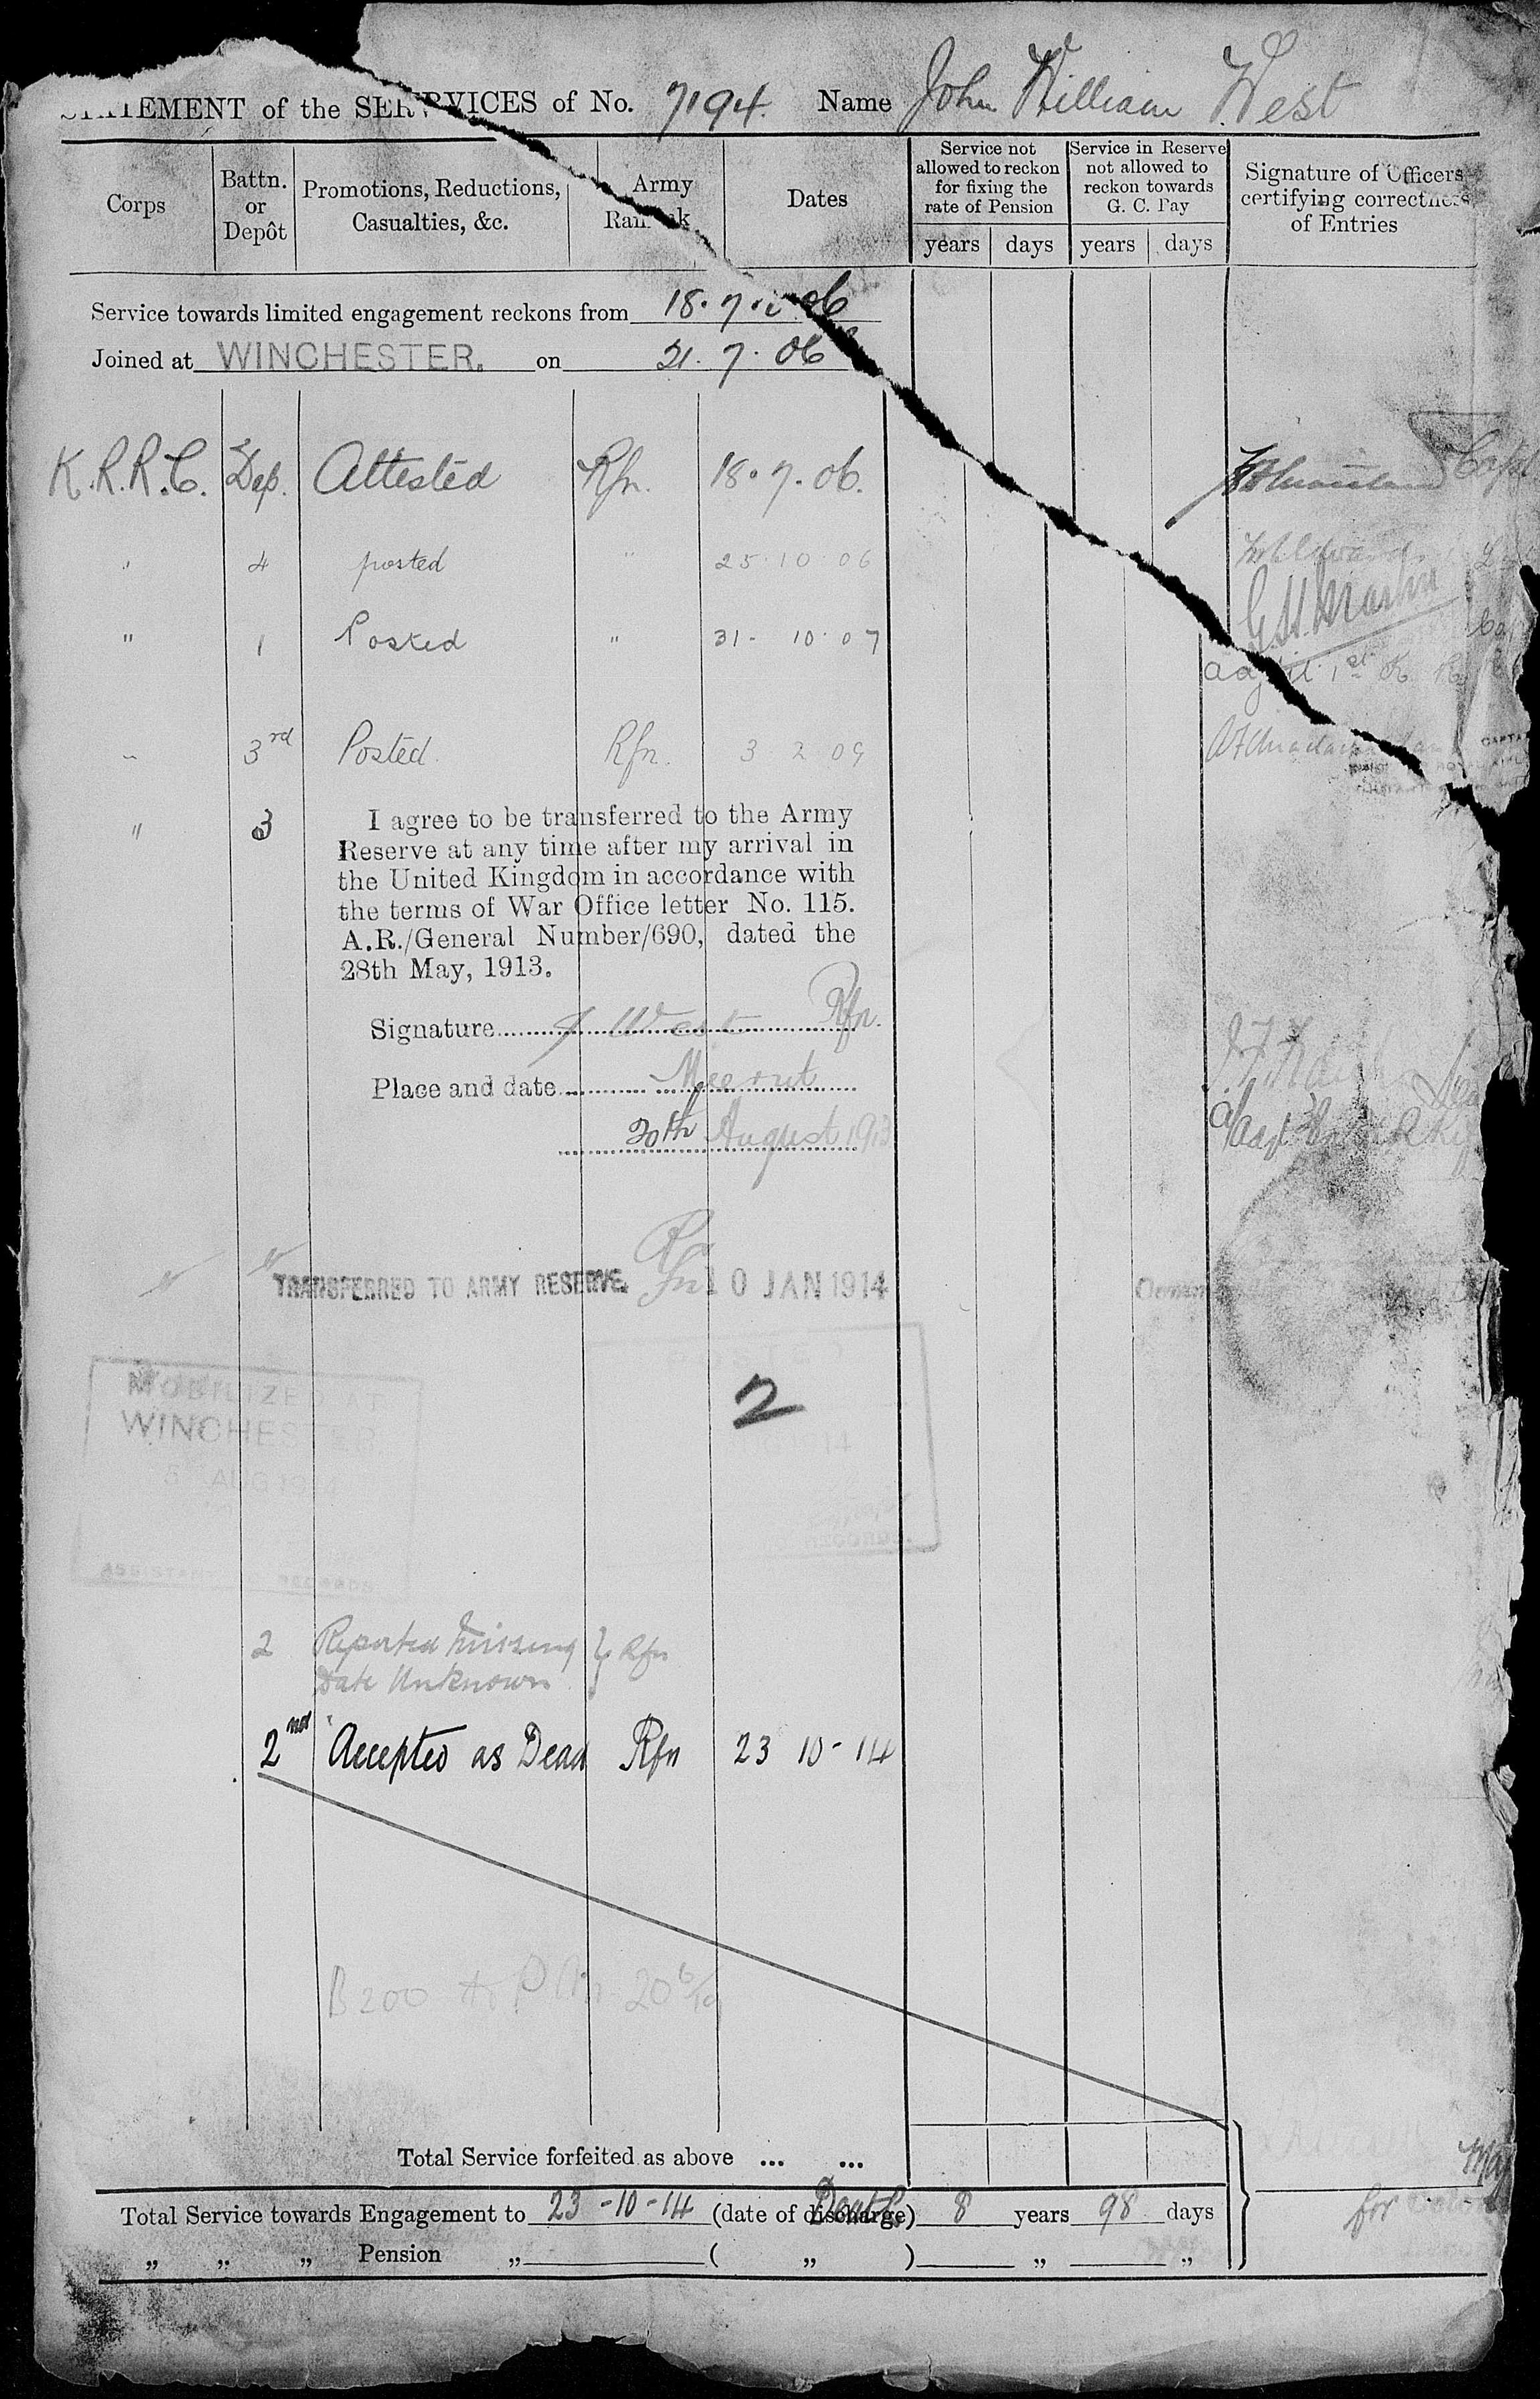 STATEMENT of the SERVICES of No. 7194. Name John William West
Corps
Battn. or Depôt
Promotions, Reductions, Casualties, &c.
Army Rank
Dates
Service not allowed to reckon for fixing the rate of Pension
years days
Service in Reserve not allowed to reckon towards G. C. Pay
years days
Signature of Officers certifying correctness of Entries
Service towards limited engagement reckons from 18.7.06
Joined at WINCHESTER. on 21.7.06
K.R.R.C. Dep. Attested Rfn. 18.7.06. Capt
" 4 posted " 25.10.06
" 1 Posted " 31-10.07
Adjt 1st K. R.
" 3rd Posted. Rfn. 3 2 09
" 3 I agree to be transferred to the Army
Reserve at any time after my arrival in
the United Kingdom in accordance with
the terms of War Office letter No. 115.
A.R./General Number/690, dated the
28th May, 1913.
Signature J West Rfn.
Place and date Meerut
20th August 1913
" " TRANSFERRED TO ARMY RESERVE. Rfn 10 JAN 1914
MOBILIZED AT
WINCHESTER
5 AUG 1914
ASSISTANT RECORDS
POSTED
2
AUG 14
RECORDS.
2 Reported Missing } Rfn
Date Unknown
2nd Accepted as Dead Rfn 23 10-14
B200
Total Service forfeited as above ... ...
Total Service towards Engagement to 23-10-14 (date of discharge) Death 8 years 98 days
" " " Pension " ( " ) " "
Maj
for